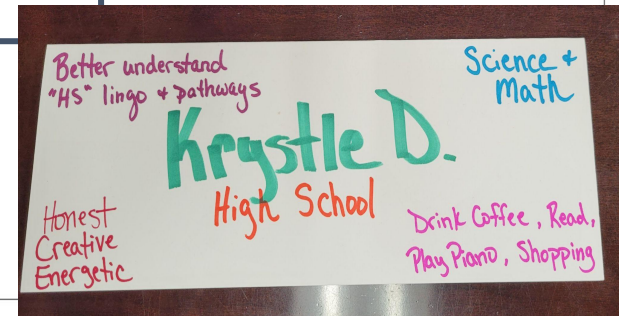 Better understand
"HS" lingo + pathways
Science +
Math
Krystle D.
High School
Honest
Creative
Energetic
Drink Coffee, Read,
Play Piano, Shopping